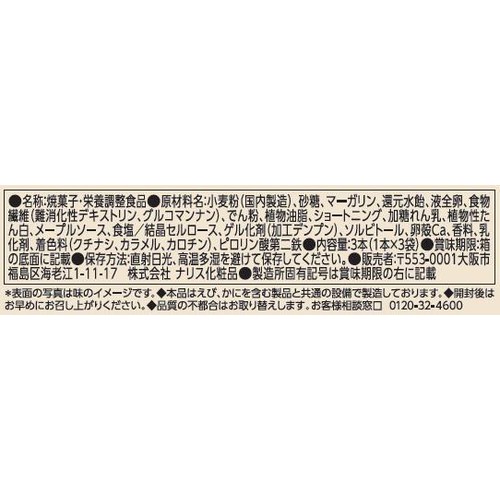 ●名称:焼菓子・栄養調整食品●原材料名:小麦粉(国内製造)、砂糖、マーガリン、還元水飴、液全卵、食物
繊維(難消化性デキストリン、グルコマンナン)、でん粉、植物油脂、ショートニング、加糖れん乳、植物性たん
白、メープルソース、食塩/結晶セルロース、ゲル化剤(加工デンプン)、ソルビトール、卵殻Ca、香料、乳化
剤、着色料(クチナシ、カラメル、カロチン)、ピロリン酸第二鉄●内容量:3本(1本×3袋)●賞味期限:箱
の底面に記載●保存方法:直射日光、高温多湿を避けて保存してください。●販売者:〒553-0001大阪市
福島区海老江1-11-17 株式会社 ナリス化粧品●製造所固有記号は賞味期限の右に記載
*表面の写真は味のイメージです。◆本品はえび、かにを含む製品と共通の設備で製造しております。◆開封後は
お早めにお召し上がりください。◆品質の不都合はお取り替えします。お客様相談窓口 0120-32-4600